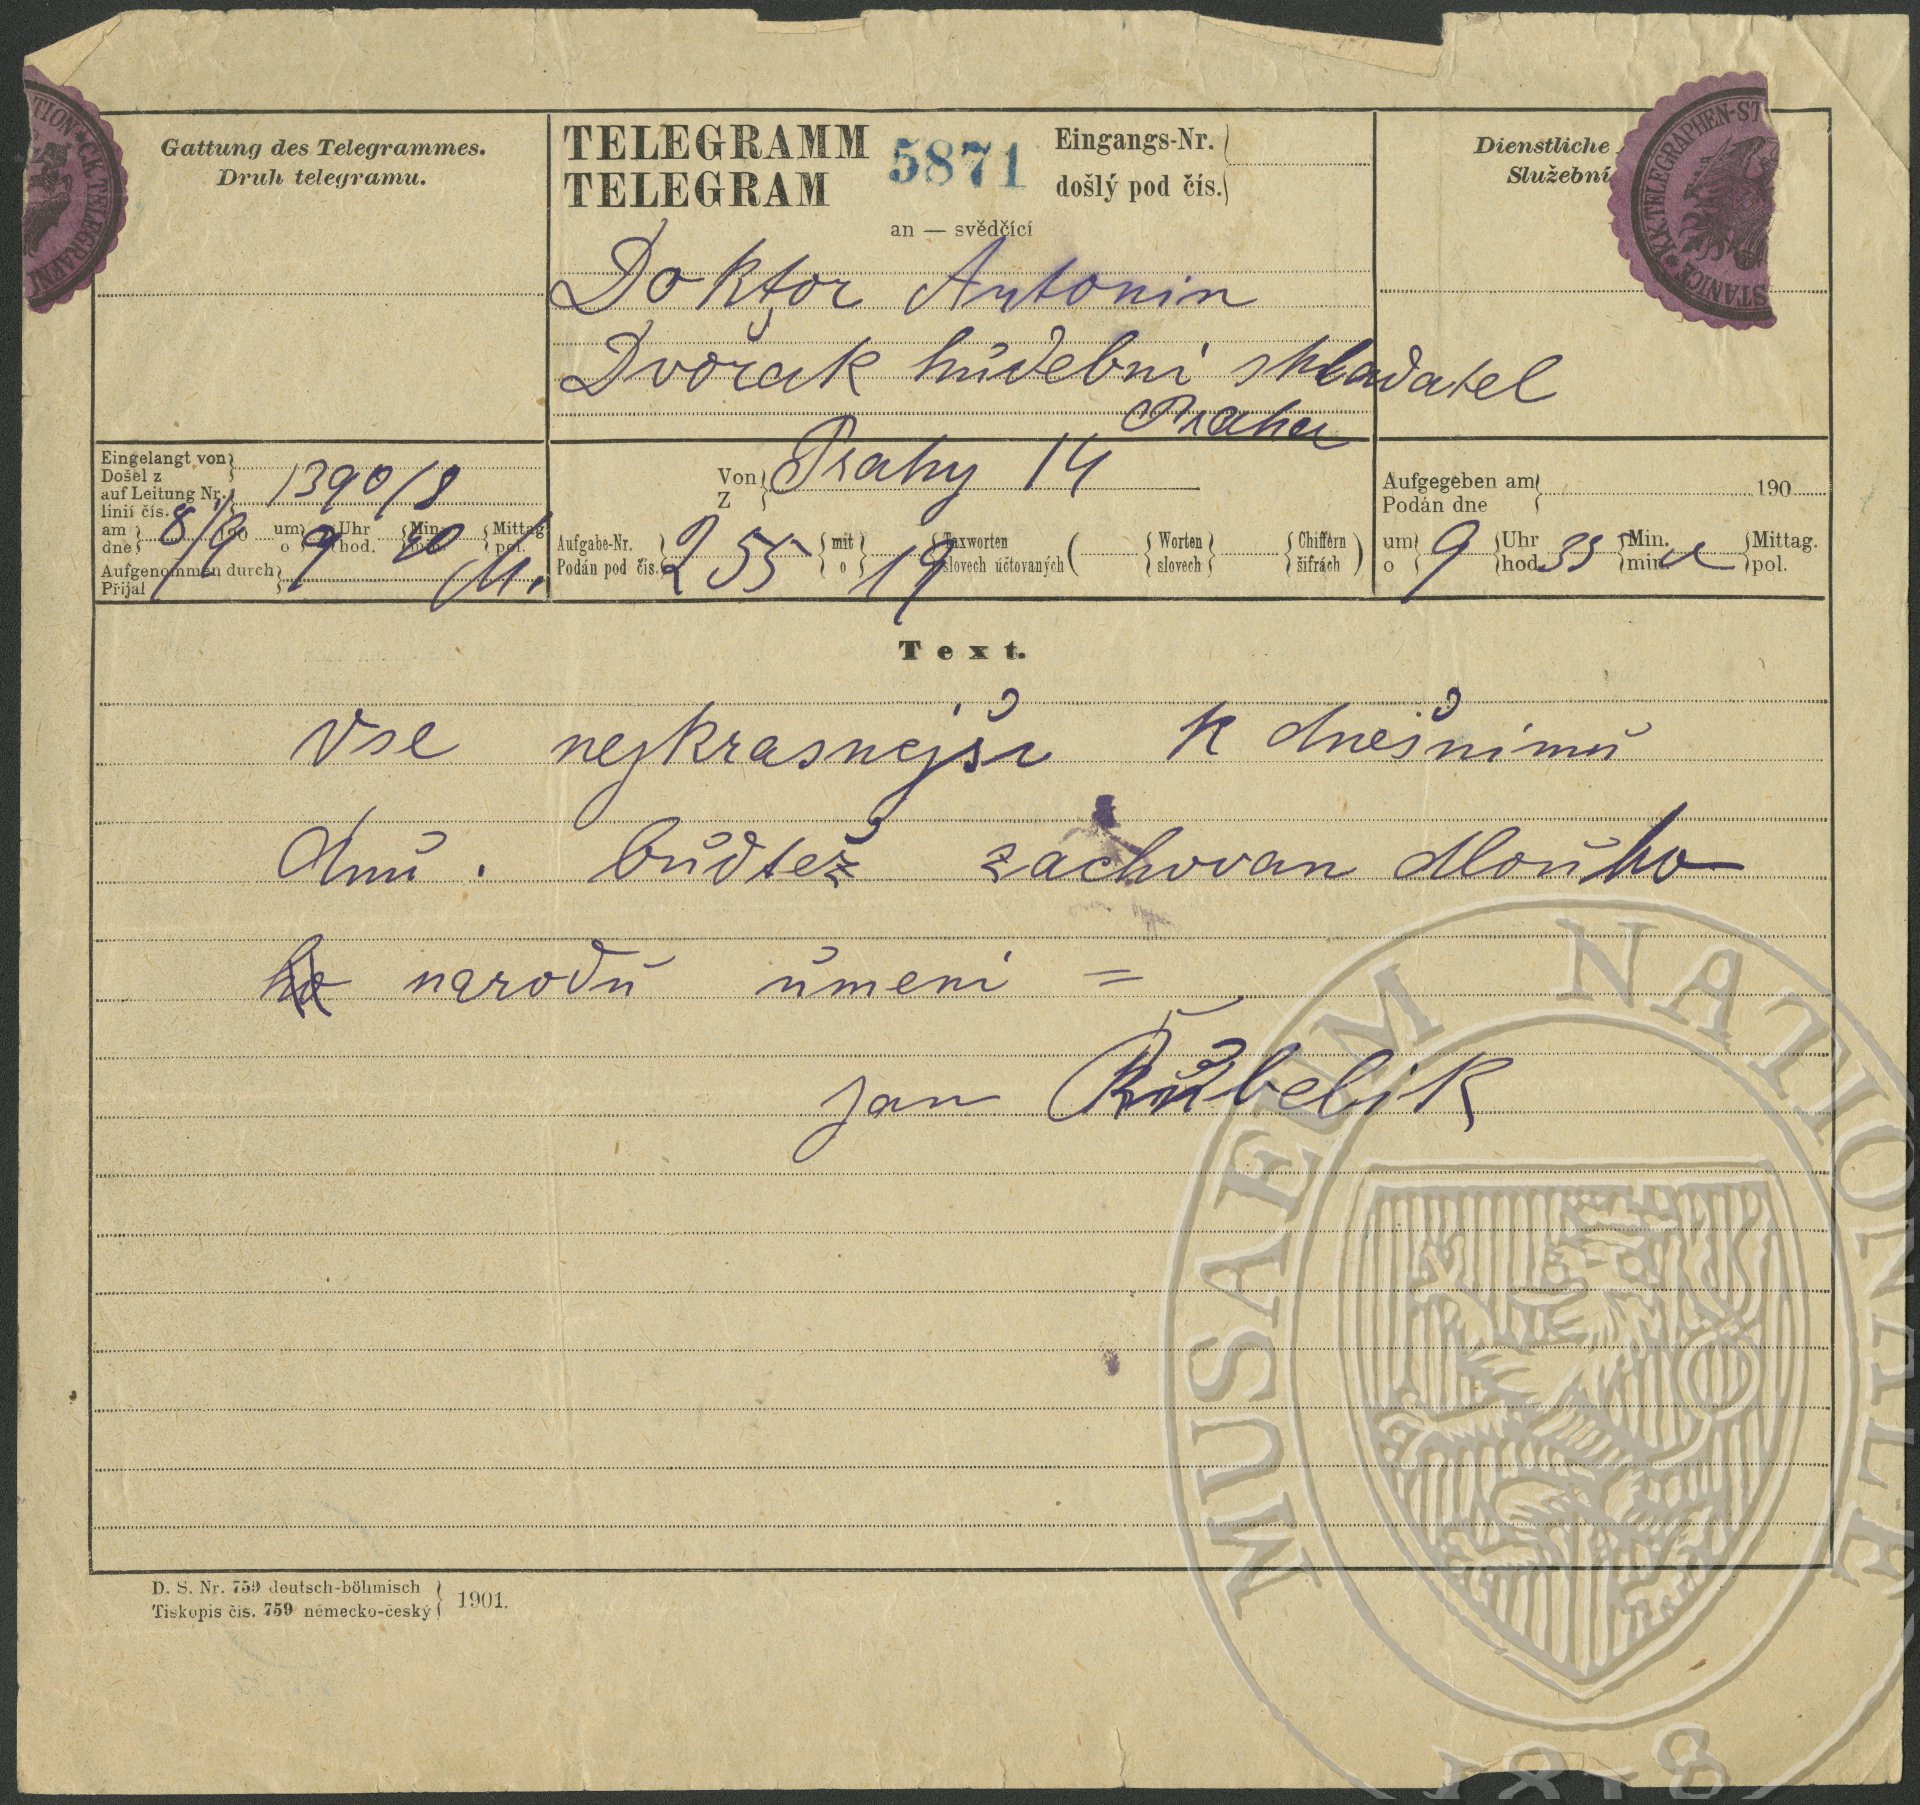 Gattung des Telegrammes.
Druh telegramu.
TELEGRAMM
TELEGRAM
5871
Eingangs-Nr.
došlý pod čís.
Dienstliche
Služební
TION * C.K. TELEGRAFNI
STANICE * K.K. TELEGRAPHEN-ST
an — svědčící
Doktor Antonin
Dvořak hudebni skladatel
Praha
Eingelangt von
Došel z
auf Leitung Nr.
linií čís.
1390/8
am
dne
8/9
190
um
o
9
Uhr
hod.
40
Min.
Mittag
pol.
Aufgenommen durch
Přijal
Von
Z
Prahy 14
Aufgabe-Nr.
Podán pod čís.
255
mit
o
19
Taxworten
slovech účtovaných
(
Worten
slovech
Chiffern
šifrách
)
Aufgegeben am
Podán dne
190
um
o
9
Uhr
hod.
35
Min.
min.
Mittag.
pol.
Text.
vse nejkrasnejši k dnešnimu
dnu . budtež zachovan dlouho
narodu umeni =
jan Kubelik
D. S. Nr. 759 deutsch-böhmisch
Tiskopis čís. 759 německo-český
1901.
MUSAEUM NATIONALE
1818